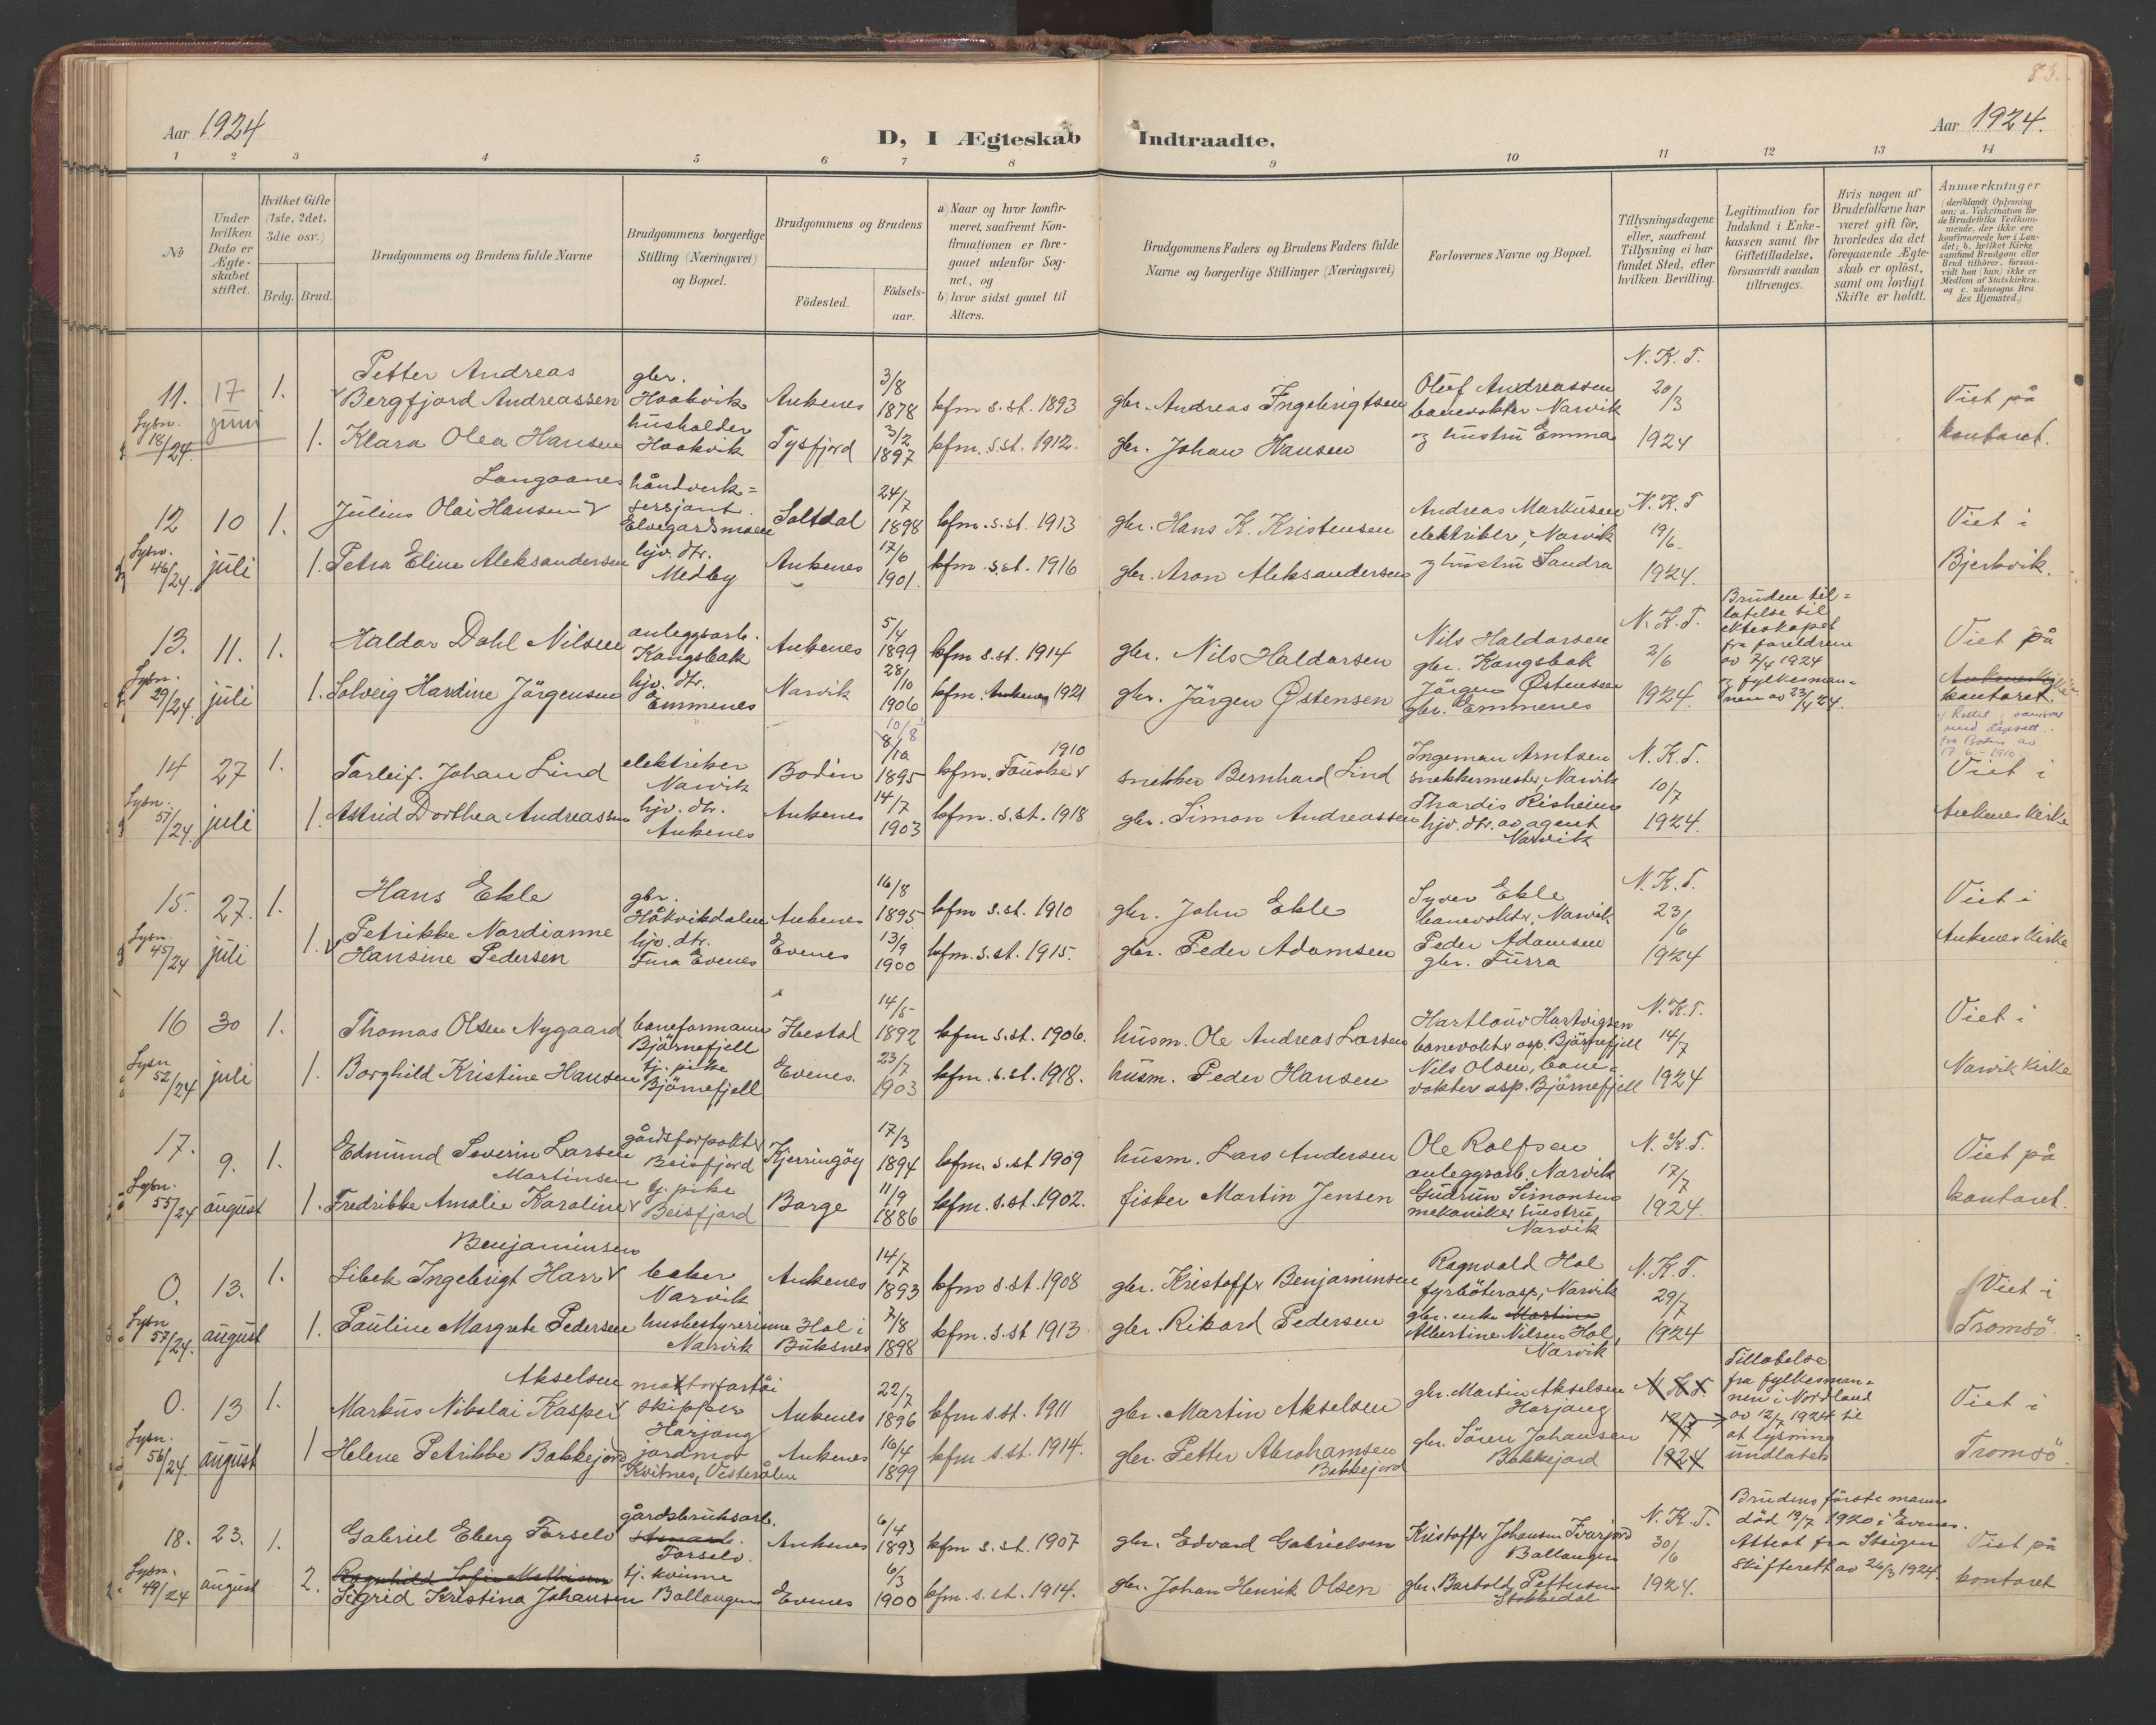 83.
Aar 1924
D, I Ægteskab Indtraadte.
Aar 1924.
1 2 3 4 5 6 7 8 9 10 11 12 13 14
No
Under hvilken Dato er Ægte-skabet stiftet.
Hvilket Gifte (1ste, 2det, 3die osv.)
Brdg. Brud.
Brudgommens og Brudens fulde Navne
Brudgommens borgerlige Stilling (Næringsvei) og Bopæl.
Brudgommens og Brudens
Födested.
Födsels-aar.
a) Naar og hvor konfir-meret, saafremt Kon-firmationen er fore-gaaet udenfor Sog-net, og
b) hvor sidst gaaet til Alters.
Brudgommens Faders og Brudens Faders fulde Navne og borgerlige Stillinger (Næringsvei)
Forlovernes Navne og Bopæl.
Tillysningsdagene eller, saafremt Tillysning ei har fundet Sted, efter hvilken Bevilling.
Legitimation for Indskud i Enke-kassen samt for Giftetilladelse, forsaavidt saadan tiltrænges.
Hvis nogen af Brudefolkene har været gift för, hvorledes da det foregaaende Ægte-skab er oplöst, samt om lovligt Skifte er holdt.
Anmærkninger (deriblandt Oplysning om: a. Vakcination for de Brudefolks Vedkom-mende, der ikke ere konfirmerede her i Lan-det; b. hvilket Kirke samfund Brudgom eller Brud tilhörer, forsaa-vidt han (hun) ikke er Medlem af Statskirken, og c. udensogns Bru des Hjemsted.)
11. 17 1. Petter Andreas Bergfjord Andreassen gbr. Haakvik Ankenes 3/8 1878 kfm s.st. 1893 gbr. Andreas Ingebrigtsen Oluf Andreassen banevokter Narvik N.K.T. 20/3 Viet på
Lysn. 18/24. juni 1. Klara Olea Hansen husholder Haakvik Tysfjord 3/2 1897 kfm. s.st. 1912. gbr. Johan Hansen og hustru Emma 1924 kontoret.
12 10 1. Langaanes Julius Olai Hansen håndverk=sersjant Elvegardsmoen Saltdal 24/7 1898 kfm. s.st. 1913 gbr. Hans K. Kristensen Andreas Markusen elektriker, Narvik N.K.T 19/6. Viet i
Lysn. 46/24. juli 1. Petra Eline Aleksandersen hjv. dtr. Medby Ankenes 17/6 1901. kfm. s.st. 1916 gbr. Aron Aleksandersen og hustru Sandra 1924. Bjerkvik.
13. 11. 1. Haldor Dahl Nilsen anleggsarb. Kongsbak Ankenes 5/4 1899 kfm s.st. 1914 gbr. Nils Haldorsen Nils Haldorsen gbr. Kongsbak N.K.T. 2/6 Bruden til=latelse til ekteskapet fra foreldrene av 2/4 1924 Viet på
Lysn. 29/24. juli 1. Solveig Hardine Jörgensen hjv. dtr. Emmenes Narvik 28/10 1906 kfm. Ankenes 1921 gbr. Jörgen Østensen Jörgen Østensen gbr. Emmenes 1924. og fylkesman=nen av 23/4 24. kontoret.
14 27 1. Torleif Johan Lind elektriker Narvik Bodin 10/8 8/10 1895 kfm. Fauske 1910 snekker Bernhard Lind Ingeman Arntsen snekkermester, Narvik N.K.T. 10/7 Viet i
Lysn. 57/24. juli 1. Astrid Dorthea Andreassen hjv. dtr. Ankenes Ankenes 14/7 1903 kfm. s.st. 1918 gbr. Simon Andreassen Thordis Risheim hjv. dtr. av agent Narvik 1924. Ankenes kirke
15. 27. 1. Hans Ekle gbr. Håkvikdalen Ankenes 16/8 1895. kfm s.st. 1910 gbr. John Ekle Syver Ekle banevokter, Narvik N.K.T. 23/6 Viet i
Lysn. 45/24 juli 1. Petrikke Nordianne Hansine Pedersen hjv. dtr. Evenes 13/9 1900 kfm. s.st. 1915. gbr. Peder Adamsen Peder Adamsen gbr. 1924 Ankenes kirke
16 30 1. Thomas Olsen Nygaard baneformann Björnefjell 14/5 1892 kfm s.st. 1906. husm. Ole Andreas Larsen Hartlouv Hartvigsen banevokter asp. Björnefjell N.K.T. 14/7 Viet i
Lysn 52/24 juli 1. Borghild Kristine Hansen tj. pike Björnefjell Evenes. 23/7 1903 kfm. s.st. 1918. husm. Peder Hansen Nils Olsen, bane=vokter asp. Björnefjell 1924 Narvik kirke
17. 9. 1. Edmund Severin Larsen gårdsforpakter Beisfjord Kjerringöy 17/3 1894 kfm. s.st 1909 husm. Lars Andersen Ole Rolfsen anleggsarb. Narvik N.K.T. 17/7 Viet på
Lysn. 55/24 august 1. Martinsen Fredrikke Amalie Karoline tj. pike Beisfjord Borge 11/9 1886 kfm. s.st. 1902. fisker Martin Jensen Gudrun Simonsen mekaniker hustru, Narvik 1924. kontoret.
0. 13. 1. Benjaminsen Sibek Ingebrigt Harr baker Narvik Ankenes 14/7 1893 kfm s.st. 1908 gbr. Kristoffer Benjaminsen Ragnvald Hol fyrböterasp, Narvik N.K.T. 29/7 Viet i
Lysn 57/24. august 1. Pauline Margrete Pedersen husbestyrerinne Narvik Hol i Buksnes 7/8 1898 kfm. s.st 1913 gbr. Rikard Pedersen gbr. enke Martine Albertine Nilsen Hol, Narvik 1924 Tromsö.
0. 13 1. Akselsen Markus Nikolai Kasper motorfartöi skipper Harjang Ankenes 22/7 1896 kfm s.st. 1911 gbr. Martin Akselsen gbr. Martin Akselsen Harjang N.K.T. 12/7 Tillatelse fra fylkesman=nen i Nordland av 12/7 1924 til Viet i
Lysn. 56/24. august 1 Helene Petrikke Bakkejord jordmor Kvitnes, Vesterålen Ankenes 16/4 1899 kfm s.st. 1914. gbr. Petter Abrahamsen Bakkejord gbr. Sören Johansen Bakkejord 1924 at lysning undlates Tromsö.
18. 23. 1. Gabriel Eberg Forselv gårdsbruksarb. Forselv. Ankenes 6/4 1893 kfm s.st. 1907 gbr. Edvard Gabrielsen Kristoffer Johansen Ivarjord Ballangen N.K.T. 30/6 Brudens förste mann död 19/7 1920 i Evenes. Viet på
Lysn. 49/24 august 2. Ragnhild Sofie Mathisen Sigrid Kristina Johansen tj. kvinne Ballangen Evenes 6/3 1900 kfm. s.st. 1914. gbr. Johan Henrik Olsen gbr. Bartold Pettersen 1924. Attest fra Steigen Skifterett av 26/3 1924. kontoret